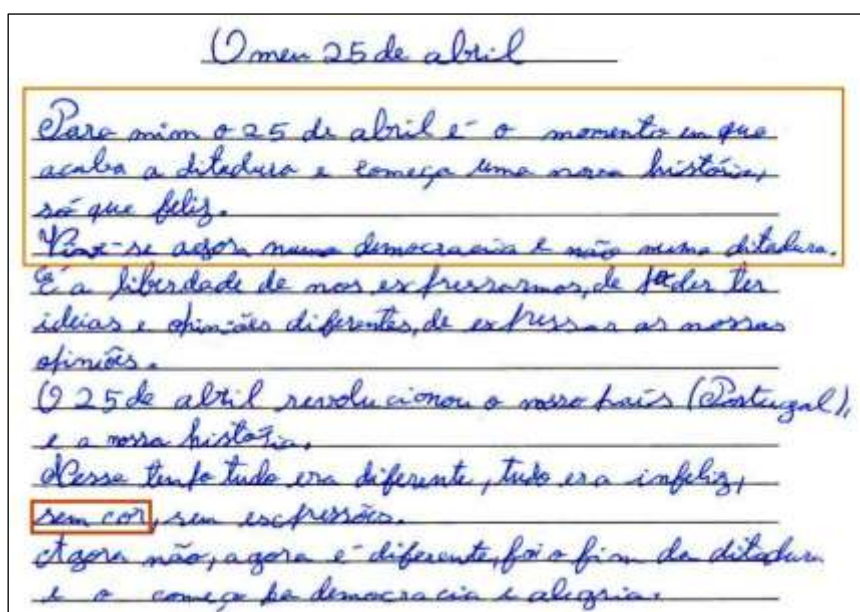 O meu 25 de abril
Para mim o 25 de abril é o momento em que
acaba a ditadura e começa uma nova história,
só que feliz.
Vive-se agora numa democracia e não numa ditadura.
É a liberdade de nos expressarmos, de poder ter
ideias e opiniões diferentes, de expressar as nossas
opiniões.
O 25 de abril revolucionou o nosso país (Portugal),
e a nossa história.
Nesse tempo tudo era diferente, tudo era infeliz,
sem cor, sem expressões.
Agora não, agora é diferente, foi o fim da ditadura
e o começo da democracia e alegria.